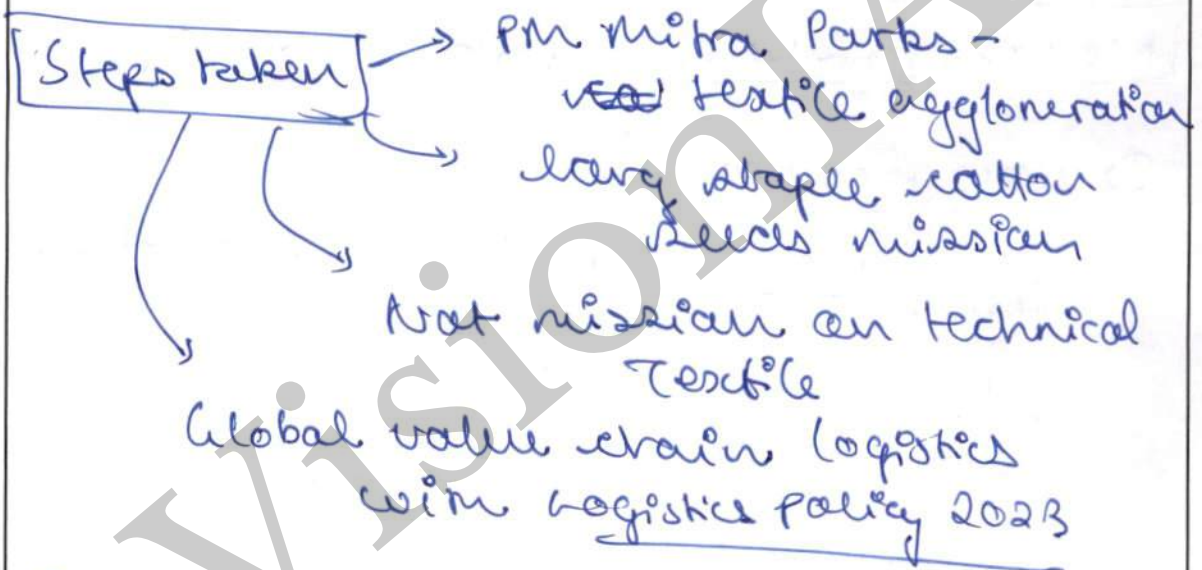 Steps taken
PM Mitra Parks -
textile agglomeration
long staple cotton
seeds mission
Nat mission on technical
Textile
Global value chain logistics
with Logistics Policy 2023
VisionIA